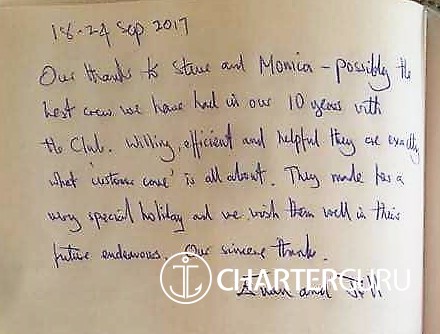 18-24 Sep 2017
Our thanks to Steve and Monica - possibly the
best crew we have had in our 10 years with
the Club. Willing, efficient and helpful they are exactly
what 'customer care' is all about. They made for a
very special holiday and we wish them well in their
future endeavours. Our sincere thanks.
CHARTERGURU
and Jill